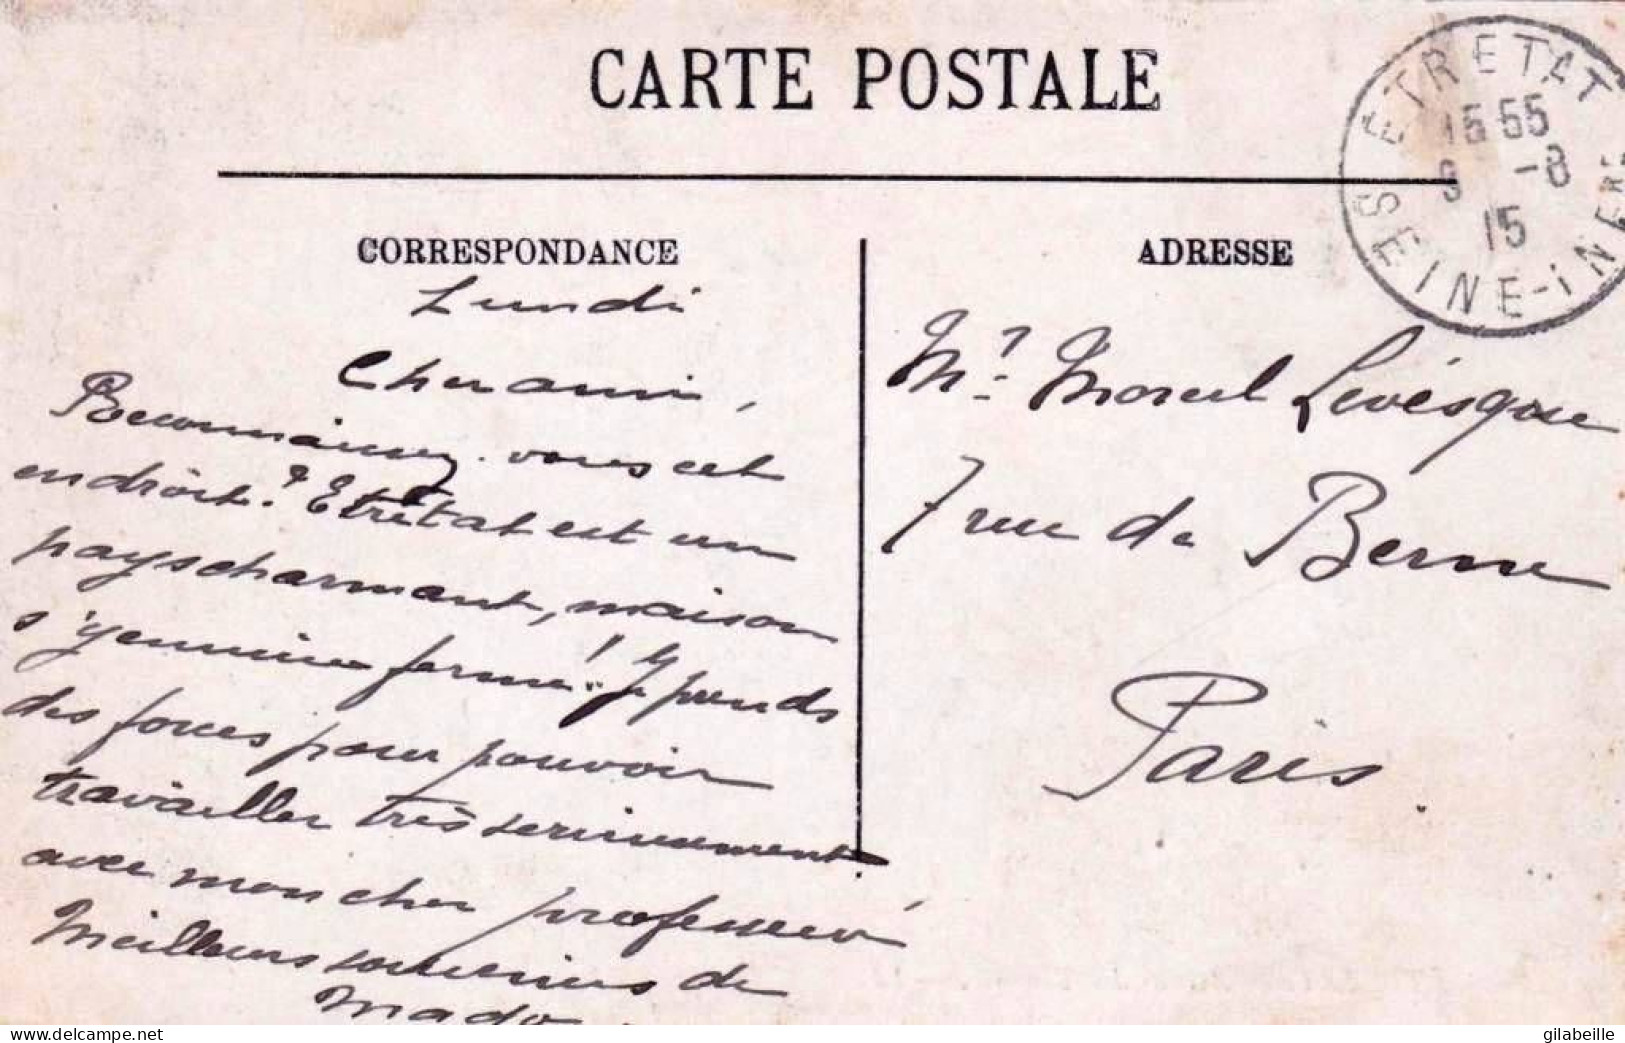 CARTE POSTALE
ETRETAT
SEINE-INFRE
15 55
9 -8
15
CORRESPONDANCE
Lundi
Cher ami,
Reconnaissez-vous cet
endroit? Etretat est un
pays charmant, mais on
s'y ennuie ferme! J'y prends
des forces pour pouvoir
travailler très serieusement
avec mon cher professeur
Meilleurs souvenirs de
Mado
ADRESSE
Mr Marcel Levésque
7 rue de Berne
Paris.
delcampe.net
gilabeille